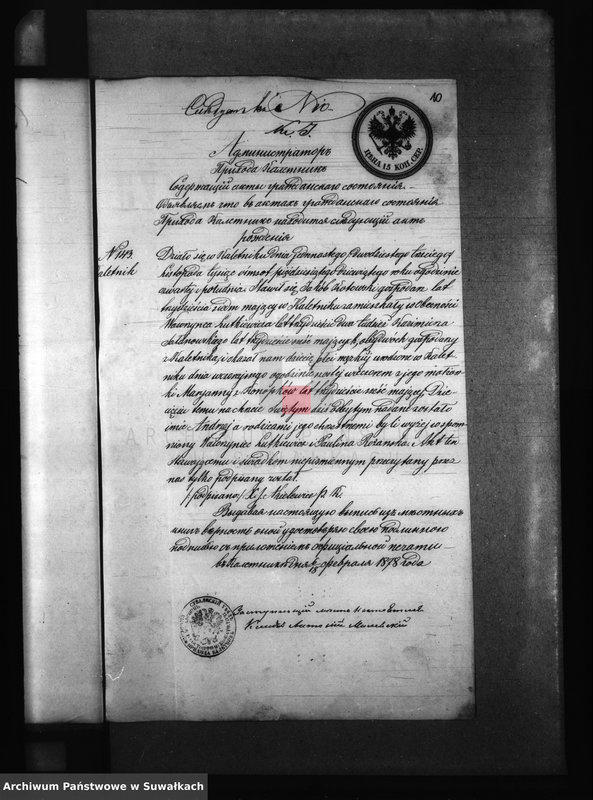 10
ЦѢНА 15 КОП. СЕР.
Администраторъ
Прихода Калетникъ
Содержащий акты гражданского состоянія
Объявляетъ что въ актахъ гражданского состоянія
Прихода Калетникъ находится следующій актъ
рожденія
N 143.
aletnik
Działo się w Kaletniku dnia jedenastego, dwudziestego trzeciego
listopada tysiąc ośmset pięćdziesiątego dziewiątego roku o godzinie
czwartej z południa. Stawił się Jakób Kotowski gospodarz lat
trzydzieści siedm mający w Kaletniku zamieszkały w obecności
Wawrzyńca Lutkiewicza lat trzydzieści dwa tudzież Kazimierza
lat trzydzieści sześć mających, obydwóch gospodarzy
z Kaletnika, i okazał nam dziecię płci męzkiej urodzone w Kalet-
niku dnia wczorajszego o godzinie szóstej wieczorem z jego małżonki
Maryanny z Konopków lat trzydzieści sześć mającej. Dzie-
cięciu temu na chrzcie Świętym dziś odbytym nadane zostało
imie Andrzej a rodzicami jego chrzestnemi byli wyżej wspom-
niony Wawrzyniec Lutkiewicz i Paulina Rożanska. Akt ten
Stawającemu i świadkom niepismiennym przeczytany przez
nas tylko podpisany został.
/podpisano/ X.
Выдавая настоящую выпись изъ мѣстныхъ
книгъ верность оной удостоверяю своею подлинною
подписью съ приложеніемъ офиціальной печати
въ Калетнике дня февраля 1878 года
Заступающій место настоятеля
Ксендзъ Антоній
Archiwum Państwowe w Suwałkach